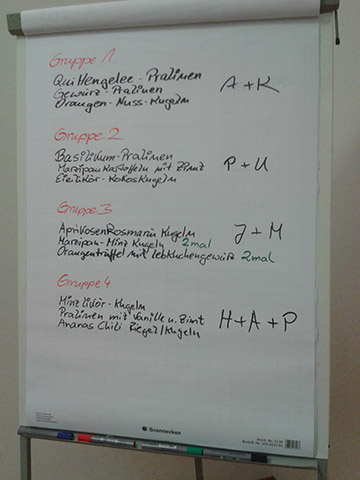 Gruppe 1
Quittengelee - Pralinen
Gewürz - Pralinen
Orangen - Nuss - Kugeln
A + K
Gruppe 2
Basilikum - Pralinen
Marzipankartoffeln mit Zimt
Eierlikör - Kokoskugeln
P + U
Gruppe 3
AprikosenRosmarin Kugeln
Marzipan - Minz Kugeln 2mal
Orangentrüffel mit Lebkuchengewürz 2mal
J + M
Gruppe 4
Minzlikör - Kugeln
Pralinen mit Vanille u. Zimt
Ananas Chili Riegel/Kugeln
H + A + P
Soennecken